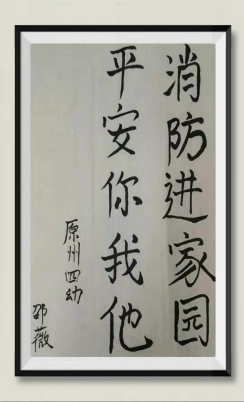 消防进家园
平安你我他
原州四幼
邵薇